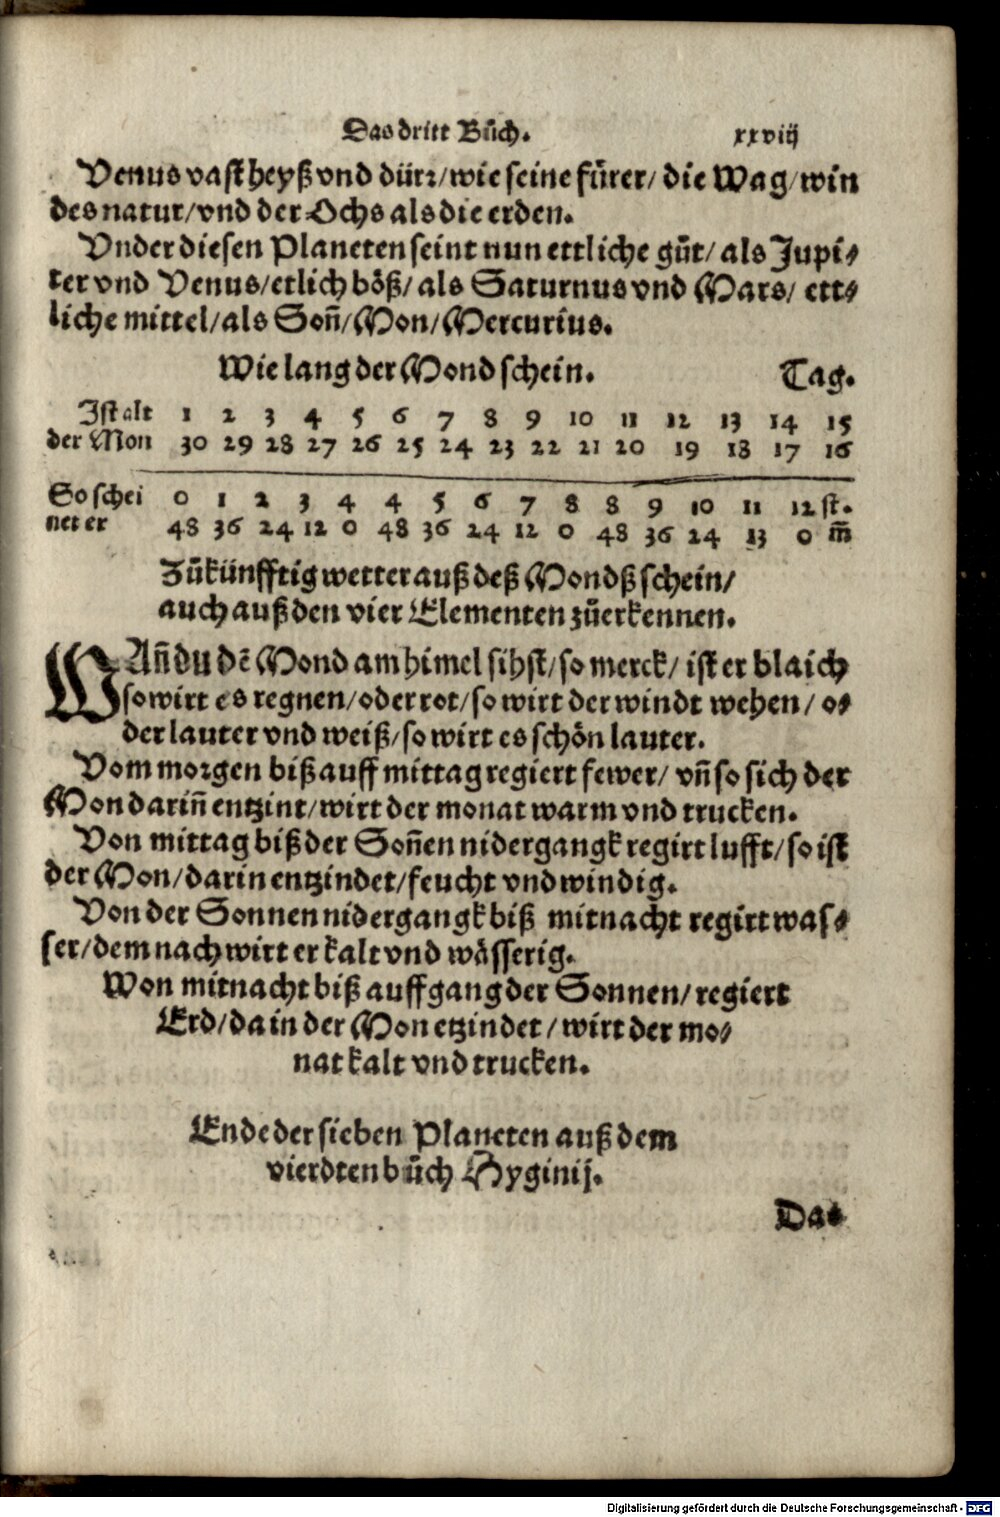 Das dritt Bůch. xxviij
Venus vast heyß vnd dürr/wie seine fürer/ die Wag/win
des natur/vnd der Ochs als die erden.
Vnder diesen Planeten seint nun ettliche gůt/ als Jupi⸗
ter vnd Venus/etlich böß/ als Saturnus vnd Mars/ ett⸗
liche mittel/als Son̄/Mon/Mercurius.
Wie lang der Mond schein. Tag.
Ist alt 1 2 3 4 5 6 7 8 9 10 11 12 13 14 15
der Mon 30 29 28 27 26 25 24 23 22 21 20 19 18 17 16
So schei 0 1 2 3 4 4 5 6 7 8 8 9 10 11 12 st.
net er 48 36 24 12 0 48 36 24 12 0 48 36 24 13 0 m̄
Zůkünfftig wetter auß deß Mondß schein/
auch auß den vier Elementen zůerkennen.
WAn̄ du dē Mond am himel sihst/so merck/ ist er blaich
so wirt es regnen/oder rot/so wirt der windt wehen/ o⸗
der lauter vnd weiß/so wirt es schön lauter.
Vom morgen biß auff mittag regiert fewer/ vn̄ so sich der
Mon darin̄ entzint/wirt der monat warm vnd trucken.
Von mittag biß der Son̄en nidergangk regirt lufft/so ist
der Mon/darin entzindet/feucht vnd windig.
Von der Sonnen nidergangk biß mitnacht regirt was⸗
ser/dem nach wirt er kalt vnd wässerig.
Won mitnacht biß auffgang der Sonnen/regiert
Erd/da in der Mon etzindet/wirt der mo⸗
nat kalt vnd trucken.
Ende der sieben Planeten auß dem
vierdten bůch Hyginij.
Das
Digitalisierung gefördert durch die Deutsche Forschungsgemeinschaft - DFG